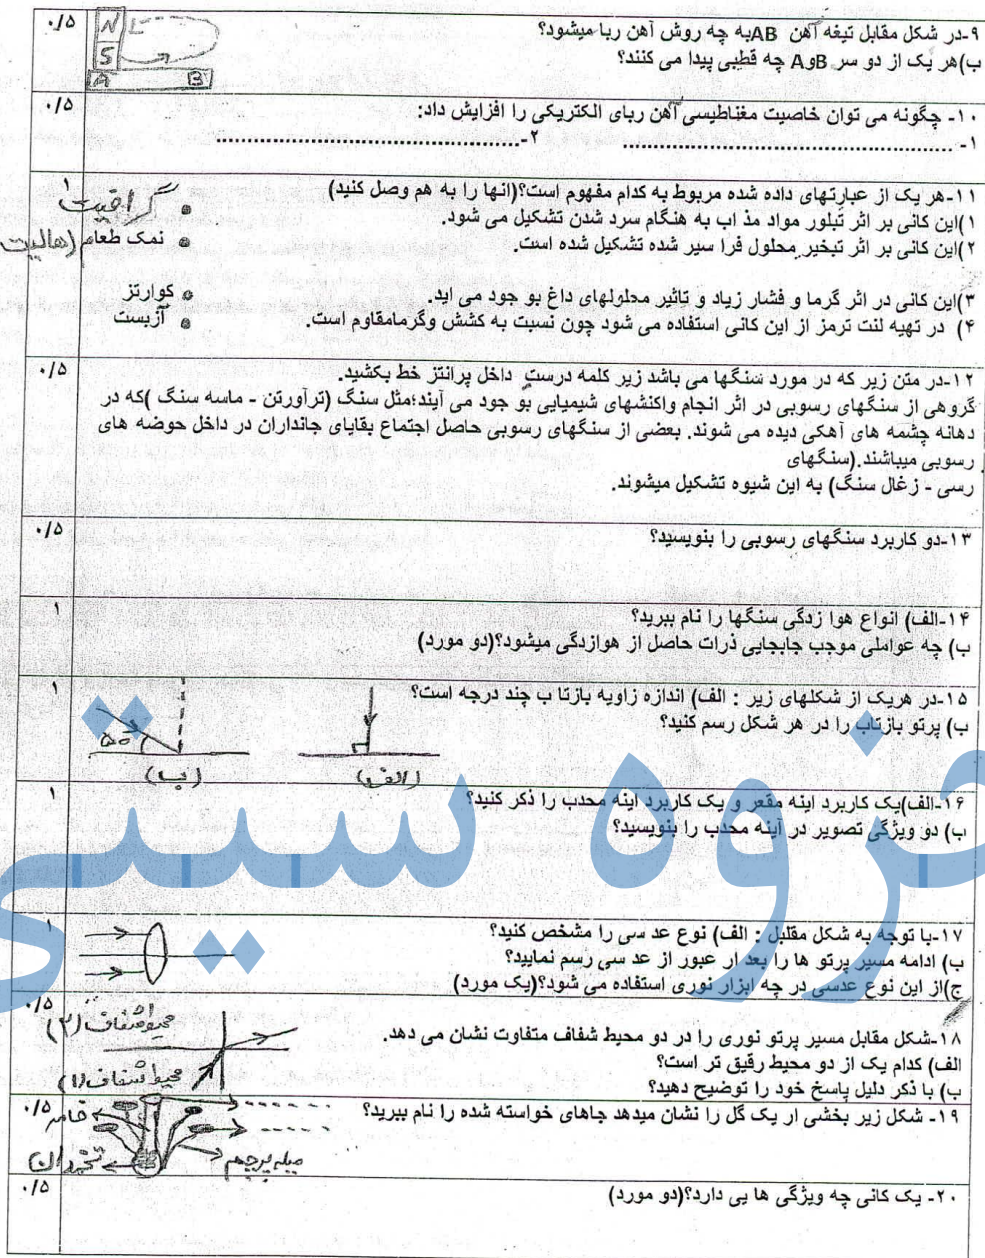 ۹-در شکل مقابل تیغه آهن ABبه چه روش آهن ربا میشود؟
ب)هر یک از دو سر BوA چه قطبی پیدا می کنند؟
۰/۵
N
S
A B
۱۰- چگونه می توان خاصیت مغناطیسی آهن ربای الکتریکی را افزایش داد:
۰/۵
۱-............................................ ۲-............................................
۱۱-هر یک از عبارتهای داده شده مربوط به کدام مفهوم است؟(انها را به هم وصل کنید)
۱
۱)این کانی بر اثر تبلور مواد مذ اب به هنگام سرد شدن تشکیل می شود. گرافیت
۲)این کانی بر اثر تبخیر محلول فرا سیر شده تشکیل شده است. نمک طعام (هالیت)
۳)این کانی در اثر گرما و فشار زیاد و تاثیر محلولهای داغ بو جود می اید. کوارتز
۴) در تهیه لنت ترمز از این کانی استفاده می شود چون نسبت به کشش وگرمامقاوم است. آزبست
۱۲-در متن زیر که در مورد سنگها می باشد زیر کلمه درست داخل پرانتز خط بکشید.
۰/۵
گروهی از سنگهای رسوبی در اثر انجام واکنشهای شیمیایی بو جود می آیند؛مثل سنگ (تراورتن - ماسه سنگ )که در
دهانه چشمه های آهکی دیده می شوند. بعضی از سنگهای رسوبی حاصل اجتماع بقایای جانداران در داخل حوضه های
رسوبی میباشند.(سنگهای
رسی - زغال سنگ) به این شیوه تشکیل میشوند.
۱۳-دو کاربرد سنگهای رسوبی را بنویسید؟
۰/۵
۱۴-الف) انواع هوا زدگی سنگها را نام ببرید؟
۱
ب) چه عواملی موجب جابجایی ذرات حاصل از هوازدگی میشود؟(دو مورد)
۱۵-در هریک از شکلهای زیر : الف) اندازه زاویه بازتا ب چند درجه است؟
۱
ب) پرتو بازتاب را در هر شکل رسم کنید؟
(الف) (ب)
۱۶-الف)یک کاربرد اینه مقعر و یک کاربرد اینه محدب را ذکر کنید؟
۱
ب) دو ویژگی تصویر در آینه محدب را بنویسید؟
۱۷-با توجه به شکل مقلبل : الف) نوع عد سی را مشخص کنید؟
۱
ب) ادامه مسیر پرتو ها را بعد ار عبور از عد سی رسم نمایید؟
ج)از این نوع عدسی در چه ابزار نوری استفاده می شود؟(یک مورد)
۱۸-شکل مقابل مسیر پرتو نوری را در دو محیط شفاف متفاوت نشان می دهد.
۰/۵
محیط شفاف (۲)
محیط شفاف (۱)
الف) کدام یک از دو محیط رقیق تر است؟
ب) با ذکر دلیل پاسخ خود را توضیح دهید؟
۱۹- شکل زیر بخشی ار یک گل را نشان میدهد جاهای خواسته شده را نام ببرید؟
۰/۵
خامه
تخمدان
میله پرچم
۲۰- یک کانی چه ویژگی ها یی دارد؟(دو مورد)
۰/۵